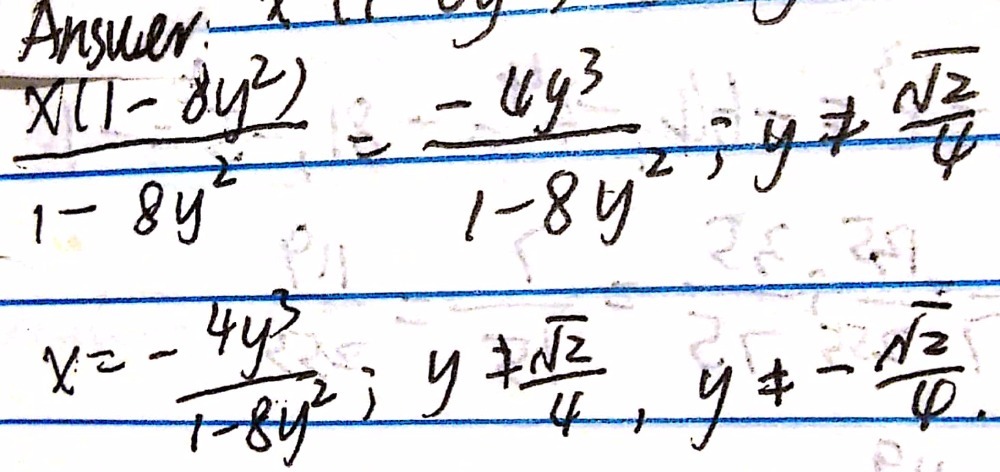 Answer:
x(1-8y²)/(1-8y²) = -4y³/(1-8y²); y ≠ √2/4
x = -4y³/(1-8y²); y ≠ √2/4, y ≠ -√2/4.